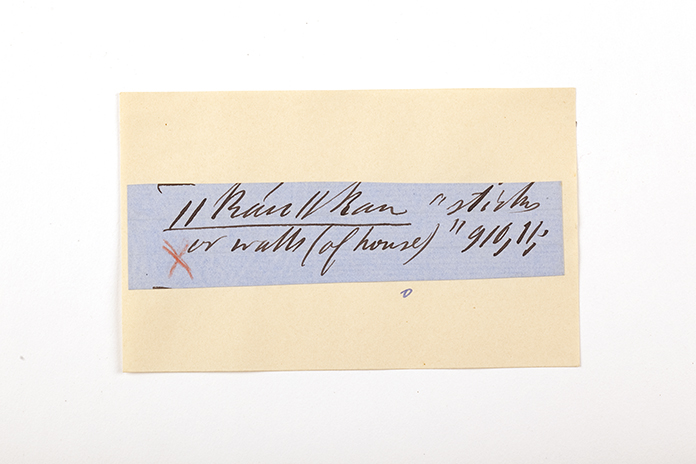 [ || kán || kan "sticks
or walls (of house)" 910, 11;